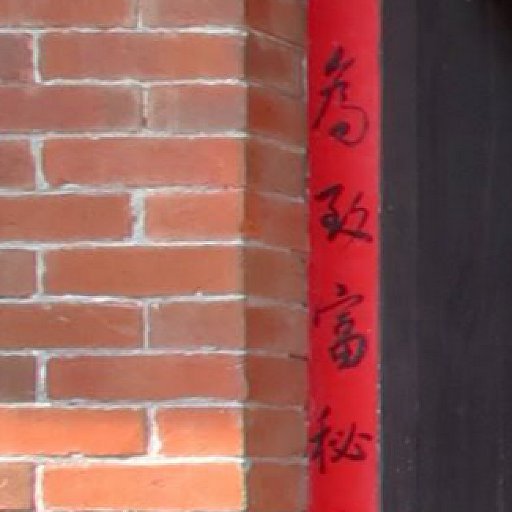 為致富秘